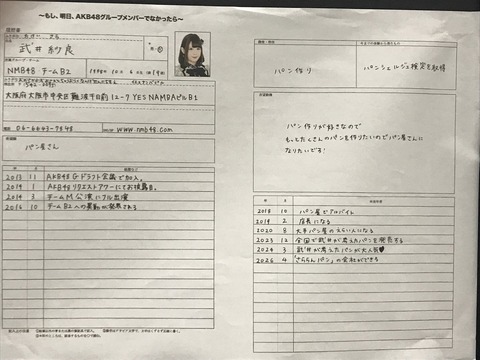 ～もし、明日、AKB48グループメンバーでなかったら～
履歴書
武井紗良
NMB48 チームBⅡ
大阪府大阪市中央区難波千日前12-7 YES NAMBAビルB1
06-6643-7848
www.nmb48.com
パン屋さん
2013 11 AKB48Gドラフト会議で加入。
2014 1 AKB48リクエストアワーにてお披露目。
2014 3 チームM公演にフル出演
2016 10 チームBⅡへの異動が発表される
パン作り
パンシェルジュ検定を取得
パン作りが好きなので
もっとたくさんのパンを作りたいのでパン屋さんに
なりたいです！
2018 10 パン屋でアルバイト
2019 2 店長になる
2020 8 大手パン屋のえらい人になる
2023 12 全国で武井が考えたパンを発売する
2024 3 武井が考えたパンが大人気♥
2026 4 「さららんパン」の会社ができる